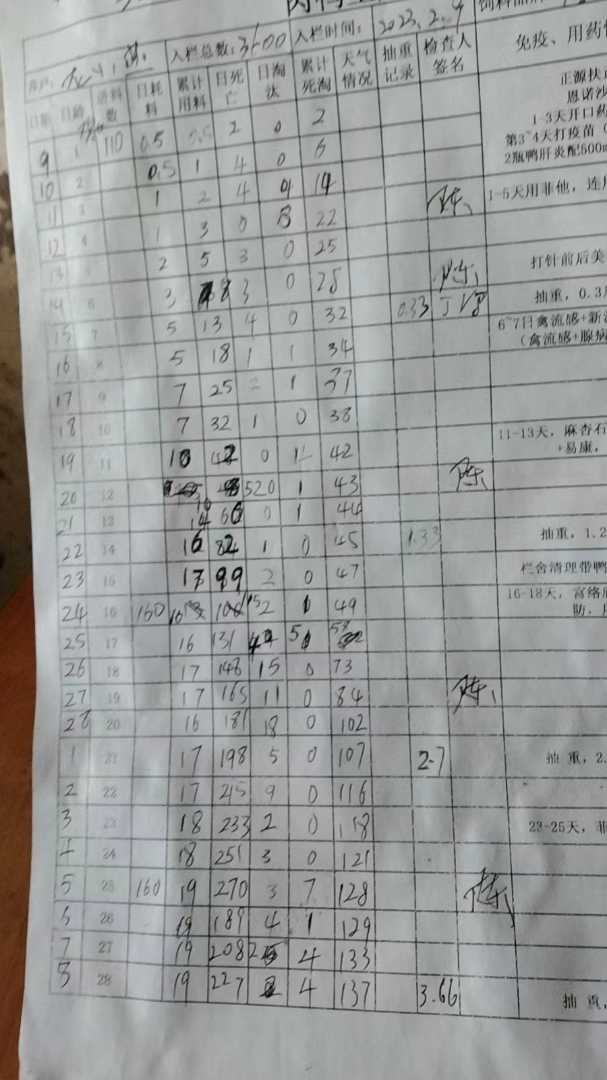 入栏总数: 3600 入栏时间: 2023.2.9
日期 日龄 进料数 日耗料 累计用料 日死亡 日淘汰 累计死淘 天气情况 抽重记录 检查人签名 免疫、用药
9 1 110 0.5 0.5 2 0 2
正源扶
恩诺沙
1-3天开口药
第3~4天打疫苗
2瓶鸭肝炎配500m
10 2 0.5 1 4 0 6
11 3 1 2 4 4 14 陈 1-5天用菲他，连
12 4 1 3 0 8 22
13 5 2 5 3 0 25 打针前后美
14 6 3 8 3 0 28 陈 抽重，0.3
15 7 5 13 4 0 32 0.33 6~7日禽流感+新
（禽流感+腺病
16 8 5 18 1 1 34
17 9 7 25 2 1 37
18 10 7 32 1 0 38
19 11 10 42 0 42 11-13天，麻杏石
+易康，
20 12 52 0 1 43 陈
21 13 14 66 0 1 44
22 14 16 82 1 0 45 1.33 抽重，1.2
23 15 17 99 2 0 47 栏舍清理带鸭
24 16 160 16 115 2 49 16-18天，富络
防，
25 17 16 131
26 18 17 148 15 0 73
27 19 17 165 11 0 84 陈
28 20 16 181 18 0 102
1 21 17 198 5 0 107 2.7 抽重，2.
2 22 17 215 9 0 116
3 23 18 233 2 0 118 23-25天，菲
4 24 18 251 3 0 121
5 25 160 19 270 3 7 128 陈
6 26 19 189 4 1 129
7 27 19 208 4 133
8 28 19 227 4 137 3.66 抽重，